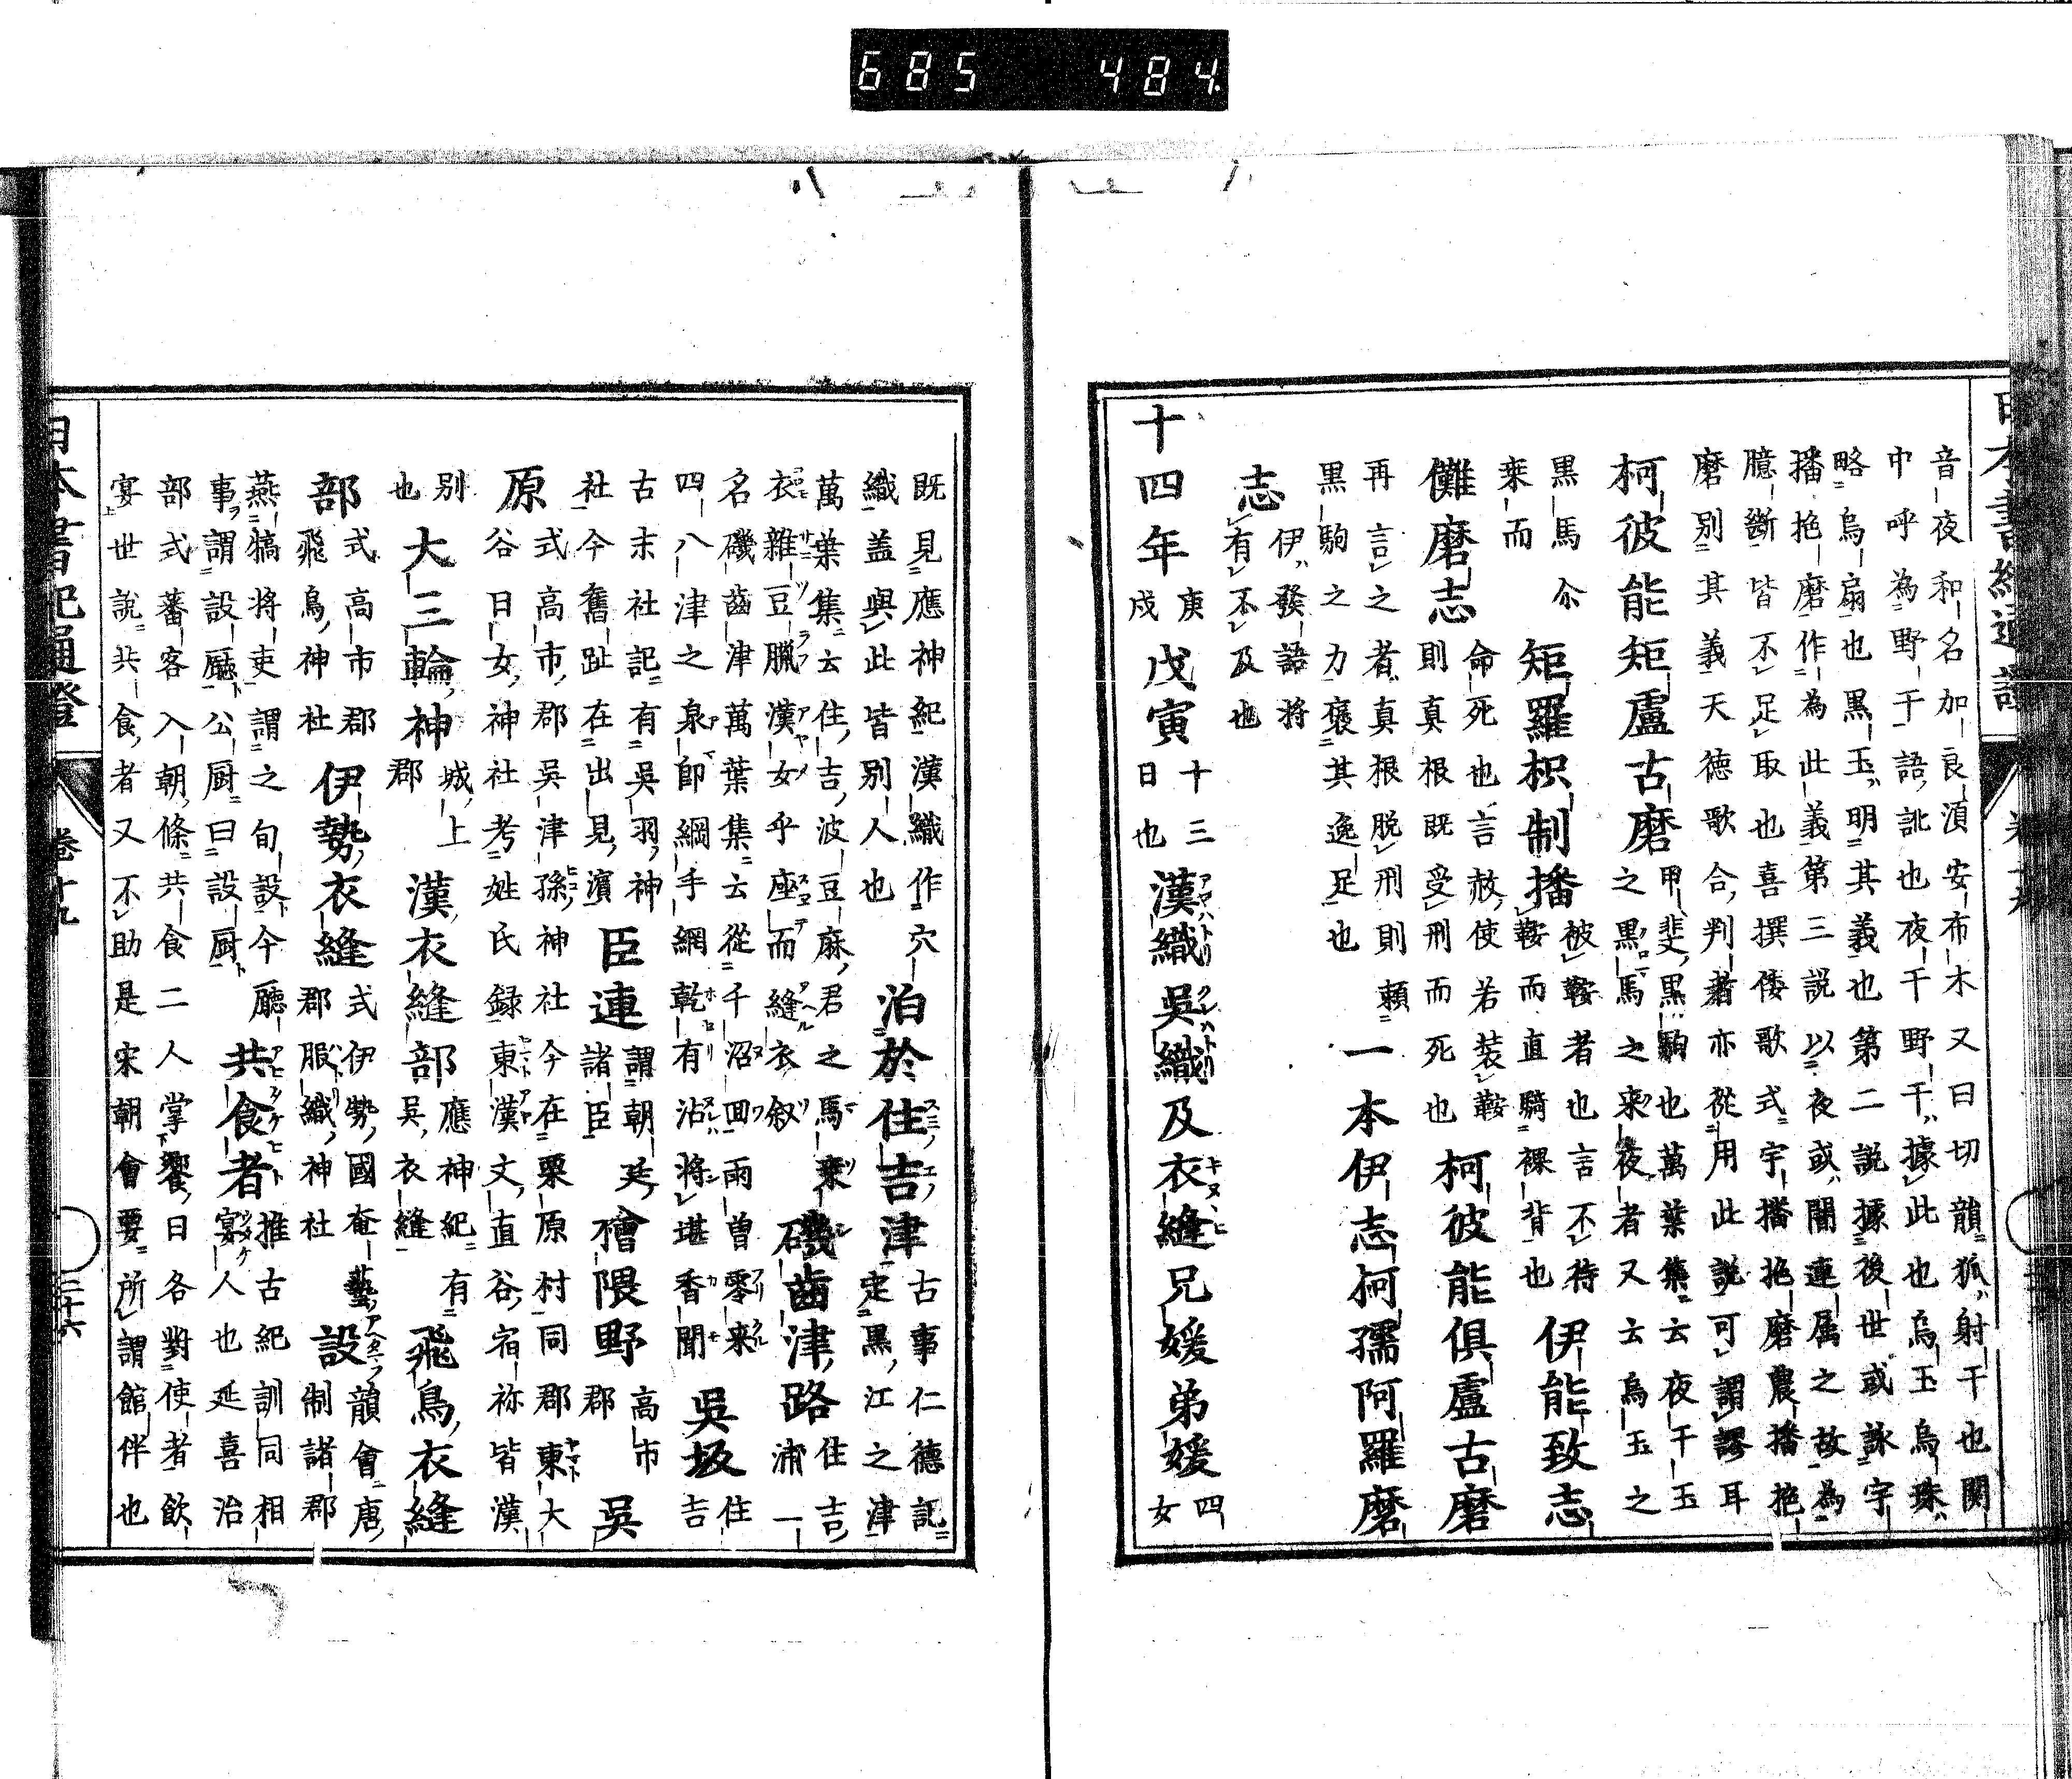 685 484
音夜和名加良湏安布木又曰切韻狐射干也関
中呼為野干語訛也夜干野干據此也烏玉烏珠
略烏扇也黒玉明其義也第二說據後世或詠字
播拖磨作為此義第三說以夜或闇連属之故為
臆斷皆不足取也喜撰倭歌式字播拖磨農播拖
磨別其義天德歌合判者亦從用此說可謂謬耳
柯彼能矩盧古磨 甲斐黒駒也萬葉集云夜干玉
之黒馬之来夜者又云烏玉之
黒馬
乗而 尒矩羅枳制播 被鞍者也言不待
鞍而直騎裸背也 伊能致志
儺磨志 命死也言赦使若装鞍
則真根既受刑而死也 柯彼能俱盧古磨
再言之者真根脱刑則頼
黒駒之力褒其逸足也 一本伊志柯孺阿羅磨
志 伊發語将
有不及也
十四年 庚
戍 戊寅 十三
日也 漢織吳織及衣縫兄媛弟媛 四
女
既見應神紀漢織作穴
織盖與此皆別人也 泊於住吉津 古事仁德記
定黒江之津
萬葉集云住吉波豆麻君之馬乗
衣雜豆臘漢女乎座而縫衣叙 磯齒津路 住吉
浦一
名磯齒津萬葉集云從千沼囬雨曽零来
四八津之泉郎綱手網乾有沾将堪香聞 吳坂 住
吉
古末社記有吳羽神
社今舊趾在出見濱 臣連 謂朝廷
諸臣 檜隈野 高市
郡 吳
原 式高市郡吳津孫神社今在栗原村同郡東大
谷日女神社考姓氏録東漢文直谷宿祢皆漢
別
也 大三輪神 城上
郡 漢衣縫部 應神紀有
吳衣縫 飛鳥衣縫
部 式高市郡
飛鳥神社 伊勢衣縫 式伊勢國奄藝
郡服織神社 設 韻會唐
制諸郡
燕犒将吏謂之旬設今廳
事謂設廳公厨曰設厨 共食者 推古紀訓同相
宴人也延喜治
部式蕃客入朝條共食二人掌饗日各對使者飲
宴世說共食者又不助是宋朝會要所謂館伴也
日本書紀通證 卷十九 三十六